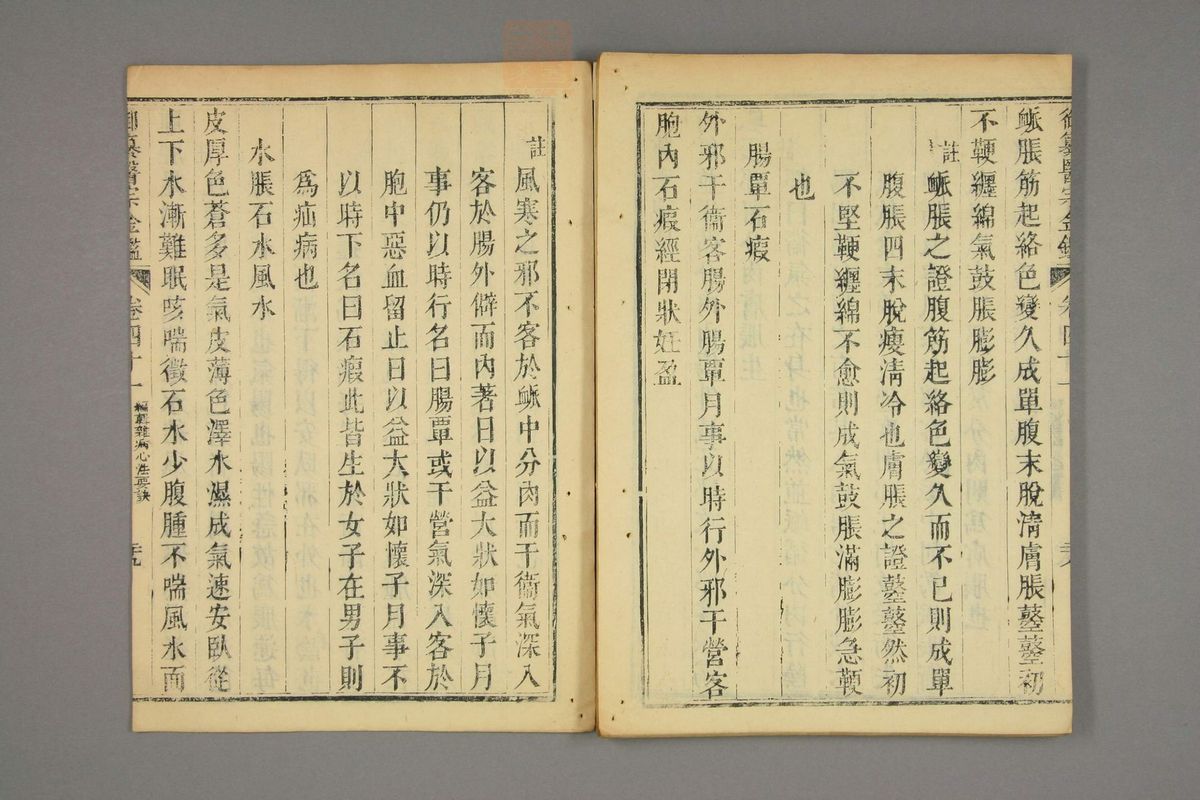 御纂醫宗金鑑 卷四十一
衇脹筋起絡色變久成單腹末脫淸膚脹䃔䃔初
不鞕纏綿氣鼓脹膨膨
註 衇脹之證腹筋起絡色變久而不已則成單
腹脹四末脫瘦淸冷也膚脹之證䃔䃔然初
不堅鞕纏綿不愈則成氣鼓脹滿膨膨急鞕
也
腸覃石瘕
外邪干衞客腸外腸覃月事以時行外邪干營客
胞內石瘕經閉狀妊盈
註 風寒之邪不客於衇中分肉而干衞氣深入
客於腸外僻而內著日以益大狀如懷子月
事仍以時行名曰腸覃或干營氣深入客於
胞中惡血留止日以益大狀如懷子月事不
以時下名曰石瘕此皆生於女子在男子則
爲疝病也
水脹石水風水
皮厚色蒼多是氣皮薄色澤水濕成氣速安臥從
上下水漸難眠咳喘徵石水少腹腫不喘風水面
御纂醫宗金鑑 卷四十一 編輯雜病心法要訣 三九